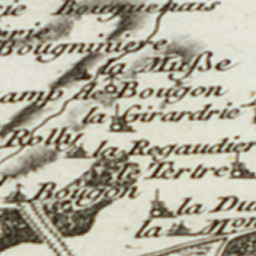 Bouguenais
Bougniniere
la Muße
Camp de Bougon
la Girardrie
Rolly
la Regaudier
le Tertre
Bougon
la Du
la Mon